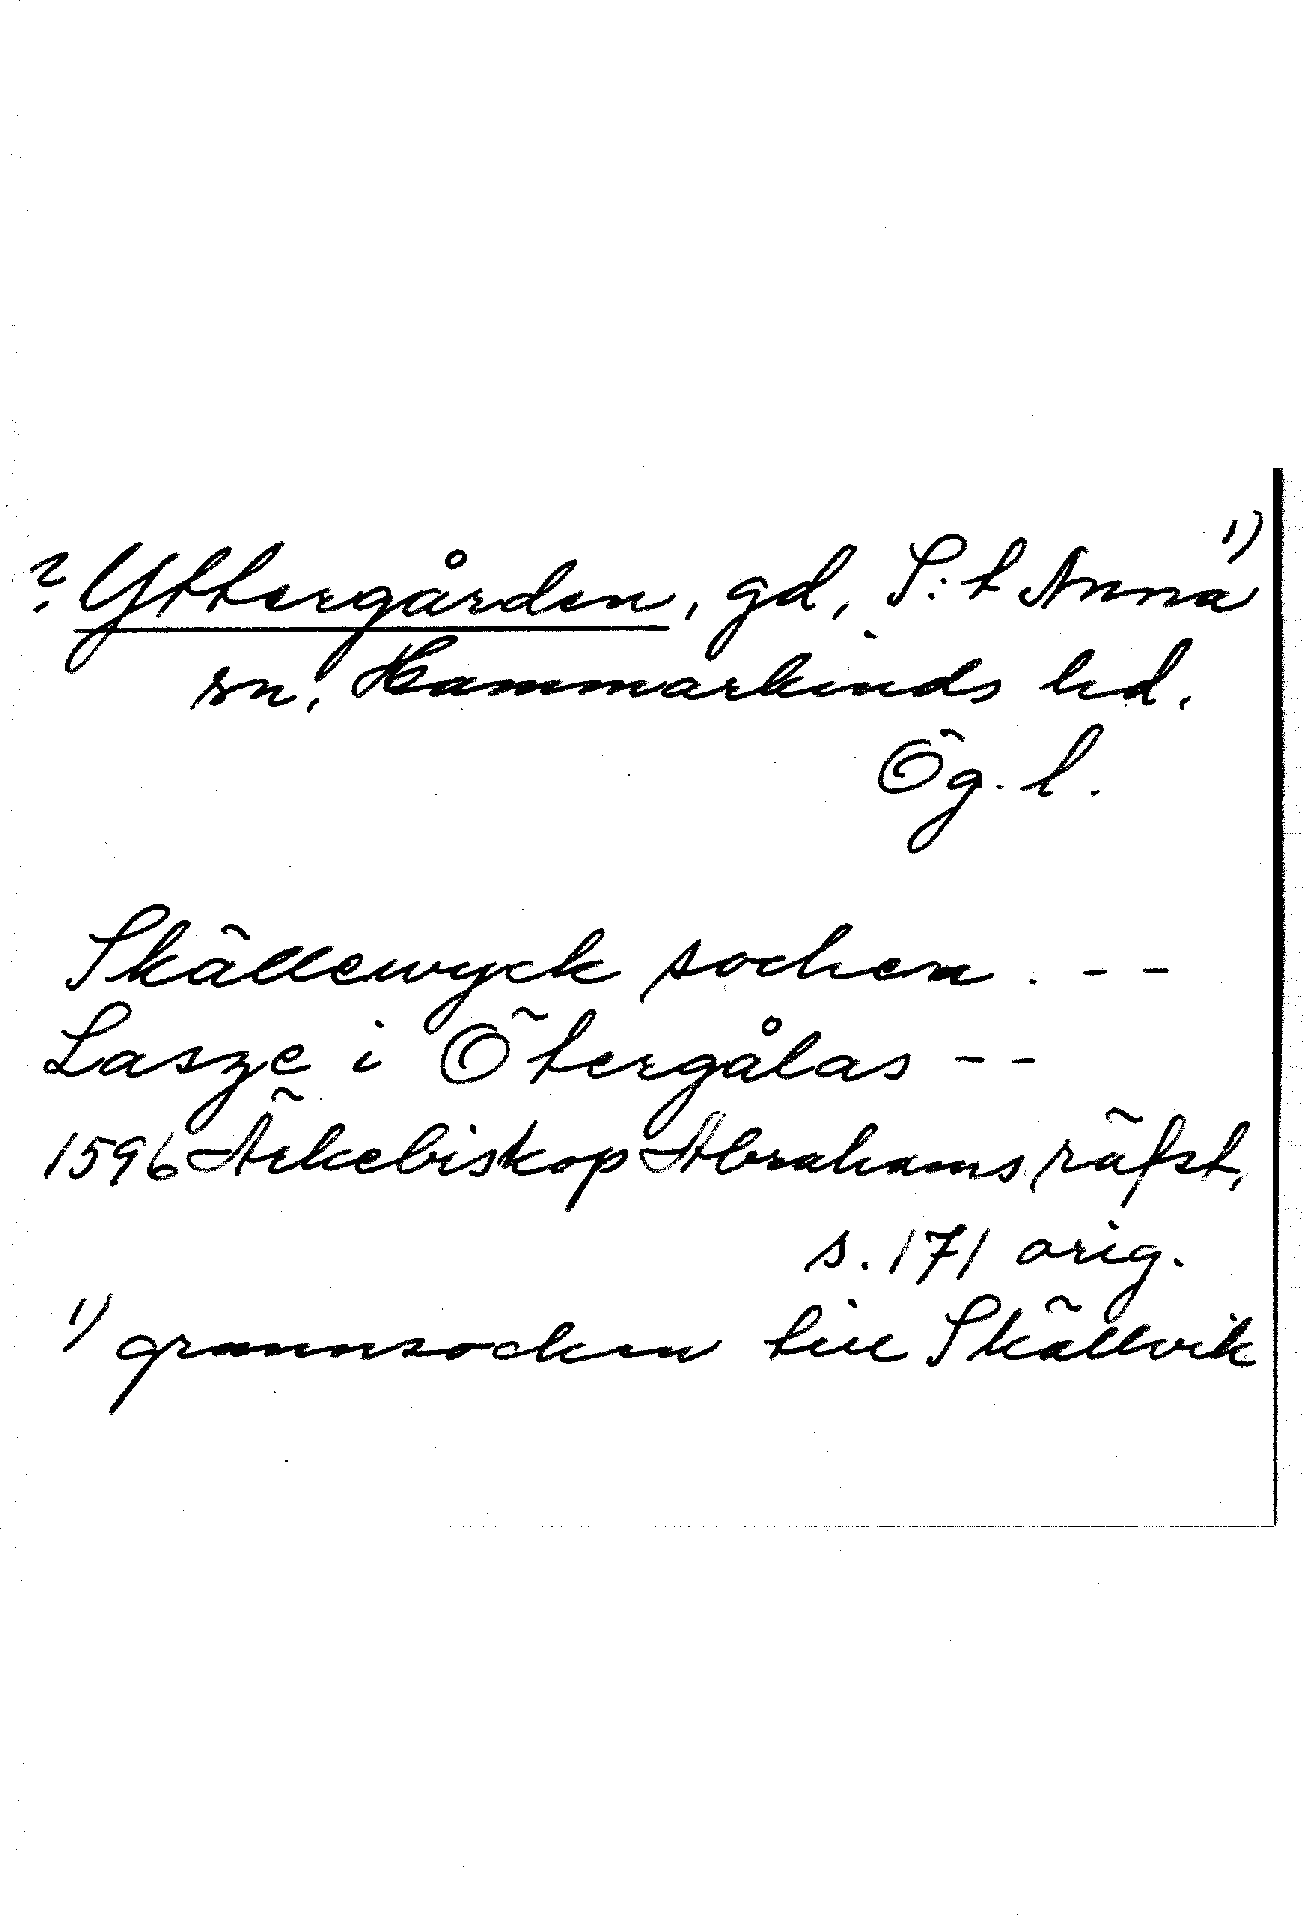 ? Yttergården, gd, S:t Anna 1)
sn, Hammarkinds hd.
Ög. l.
Skällewyck sochen. - -
Lasze i Ötergålas - -
1596 Ärkebiskop Abrahams räfst,
s. 171 orig.
1) grannsocken till Skällvik